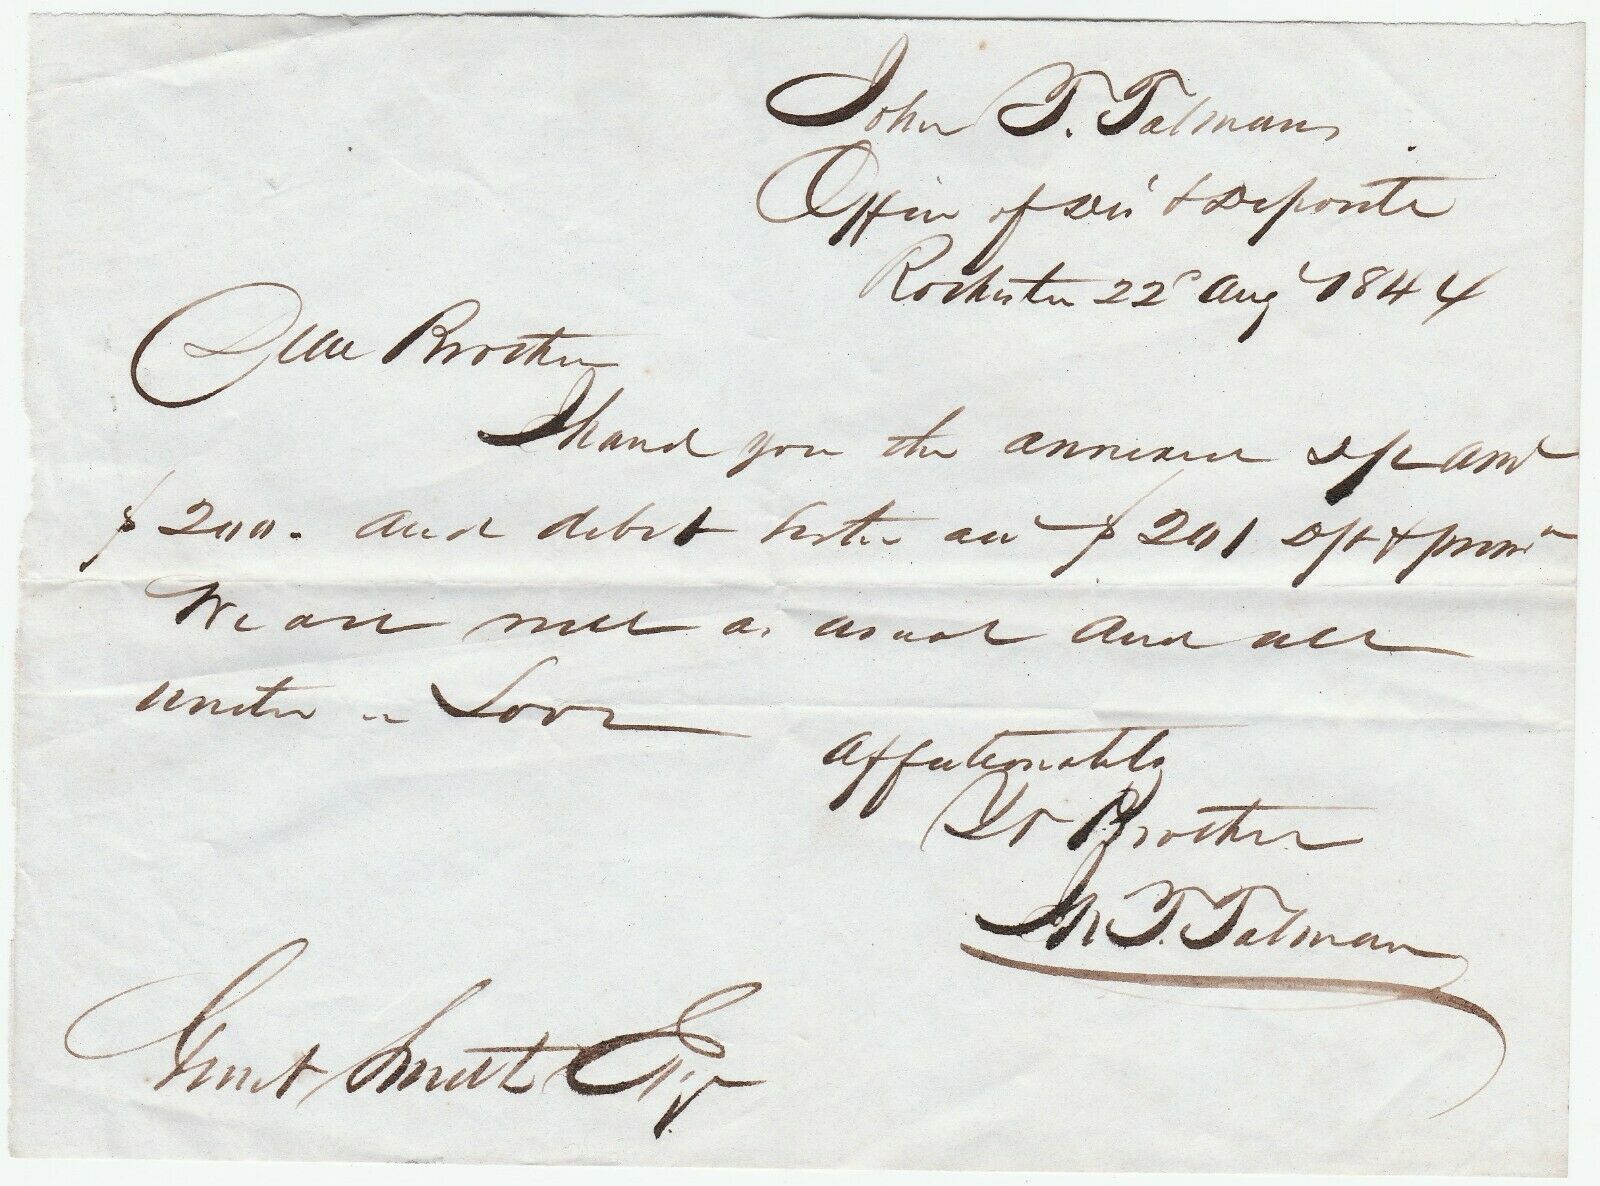 John T. Talman,
Office of Dis' & Deposite
Rochester 22d Aug 1844
Dear Brother
I hand you the annexed Dft amt
$200. and debit Sister acc $201 Dft & prem
We are well as usual and all
unite in Love
Affectionately
Yr Brother
Jn T. Talman
Gerrit Smith Esqr